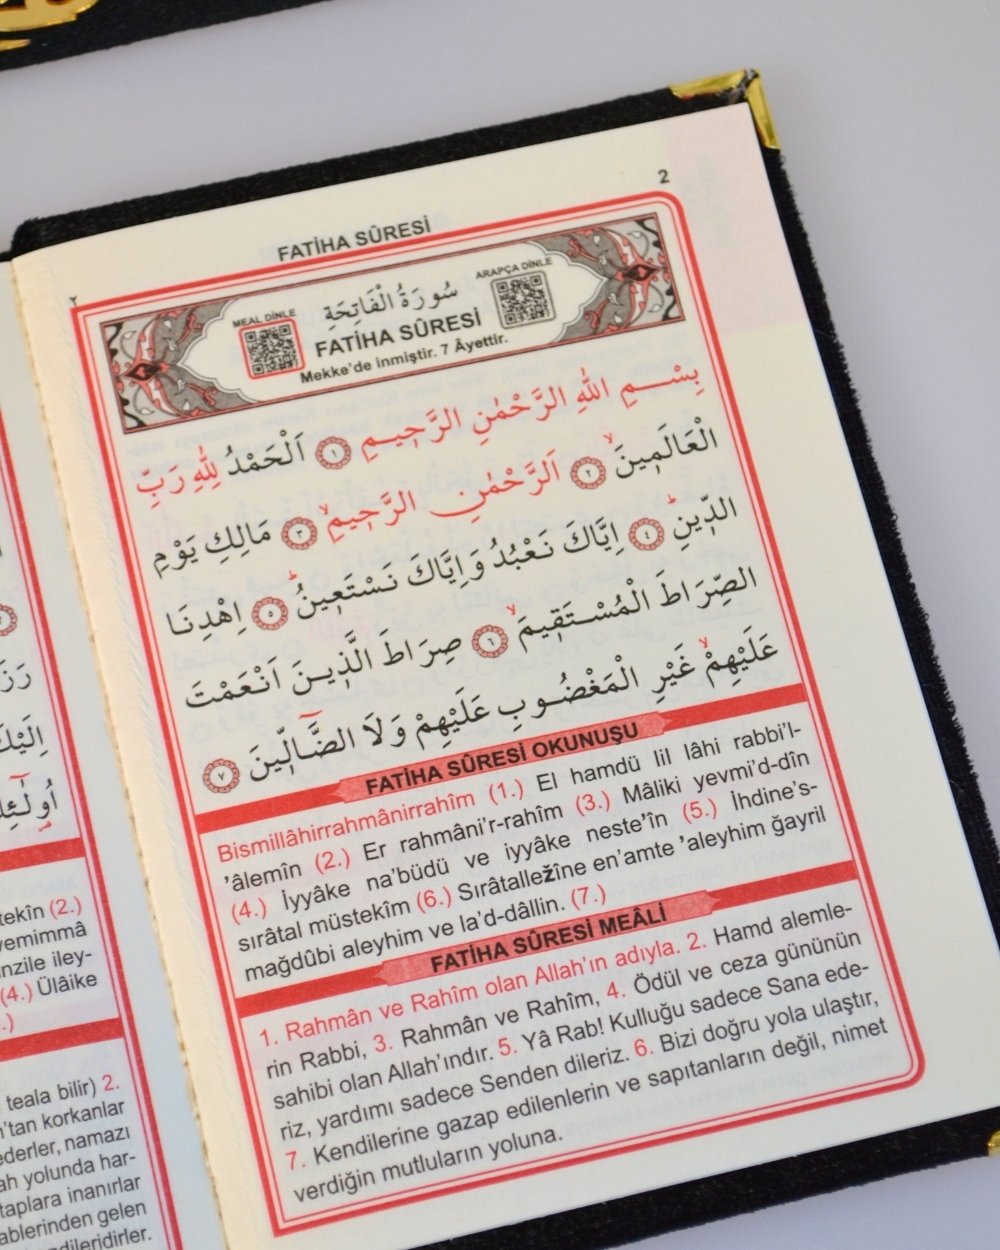 2
FATİHA SÛRESİ
٢
MEAL DİNLE
ARAPÇA DİNLE
سُورَةُ الْفَاتِحَةِ
FATİHA SÛRESİ
Mekke'de inmiştir. 7 Âyettir.
بِسْــمِ اللهِ الرَّحْمٰنِ الرَّحٖيــمِ ١ اَلْحَمْدُ لِلّٰهِ رَبِّ
الْعَالَمٖينَۙ ٢ اَلرَّحْمٰنِ الرَّحٖيمِۙ ٣ مَالِكِ يَوْمِ
الدّٖينِؕ ٤ اِيَّاكَ نَعْبُدُ وَاِيَّاكَ نَسْتَعٖينُؕ ٥ اِهْدِنَا
الصِّرَاطَ الْمُسْتَقٖيمَۙ ٦ صِرَاطَ الَّذٖيـنَ اَنْعَمْتَ
عَلَيْهِمْۙ غَيْرِ الْمَغْضُـوبِ عَلَيْهِمْ وَلَا الضَّٓالّٖينَ ٧
FATİHA SÛRESİ OKUNUŞU
Bismillâhirrahmânirrahîm (1.) El hamdü lil lâhi rabbi'l-
'âlemîn (2.) Er rahmâni'r-rahîm (3.) Mâliki yevmi'd-dîn
(4.) İyyâke na'büdü ve iyyâke neste'în (5.) İhdine's-
sırâtal müstekîm (6.) Sırâtalležîne en'amte 'aleyhim ğayril
mağdûbi aleyhim ve la'd-dâllin. (7.)
FATİHA SÛRESİ MEÂLİ
1. Rahmân ve Rahîm olan Allah'ın adıyla. 2. Hamd alemle-
rin Rabbi, 3. Rahmân ve Rahîm, 4. Ödül ve ceza gününün
sahibi olan Allah'ındır. 5. Yâ Rab! Kulluğu sadece Sana ede-
riz, yardımı sadece Senden dileriz. 6. Bizi doğru yola ulaştır,
7. Kendilerine gazap edilenlerin ve sapıtanların değil, nimet
verdiğin mutluların yoluna.
tekîn (2.)
yemimmâ
nzile iley-
(4.) Ülâike
teala bilir) 2.
n'tan korkanlar
ederler, namazı
ah yolunda har-
taplara inanırlar
ablerinden gelen
ndileridirler.